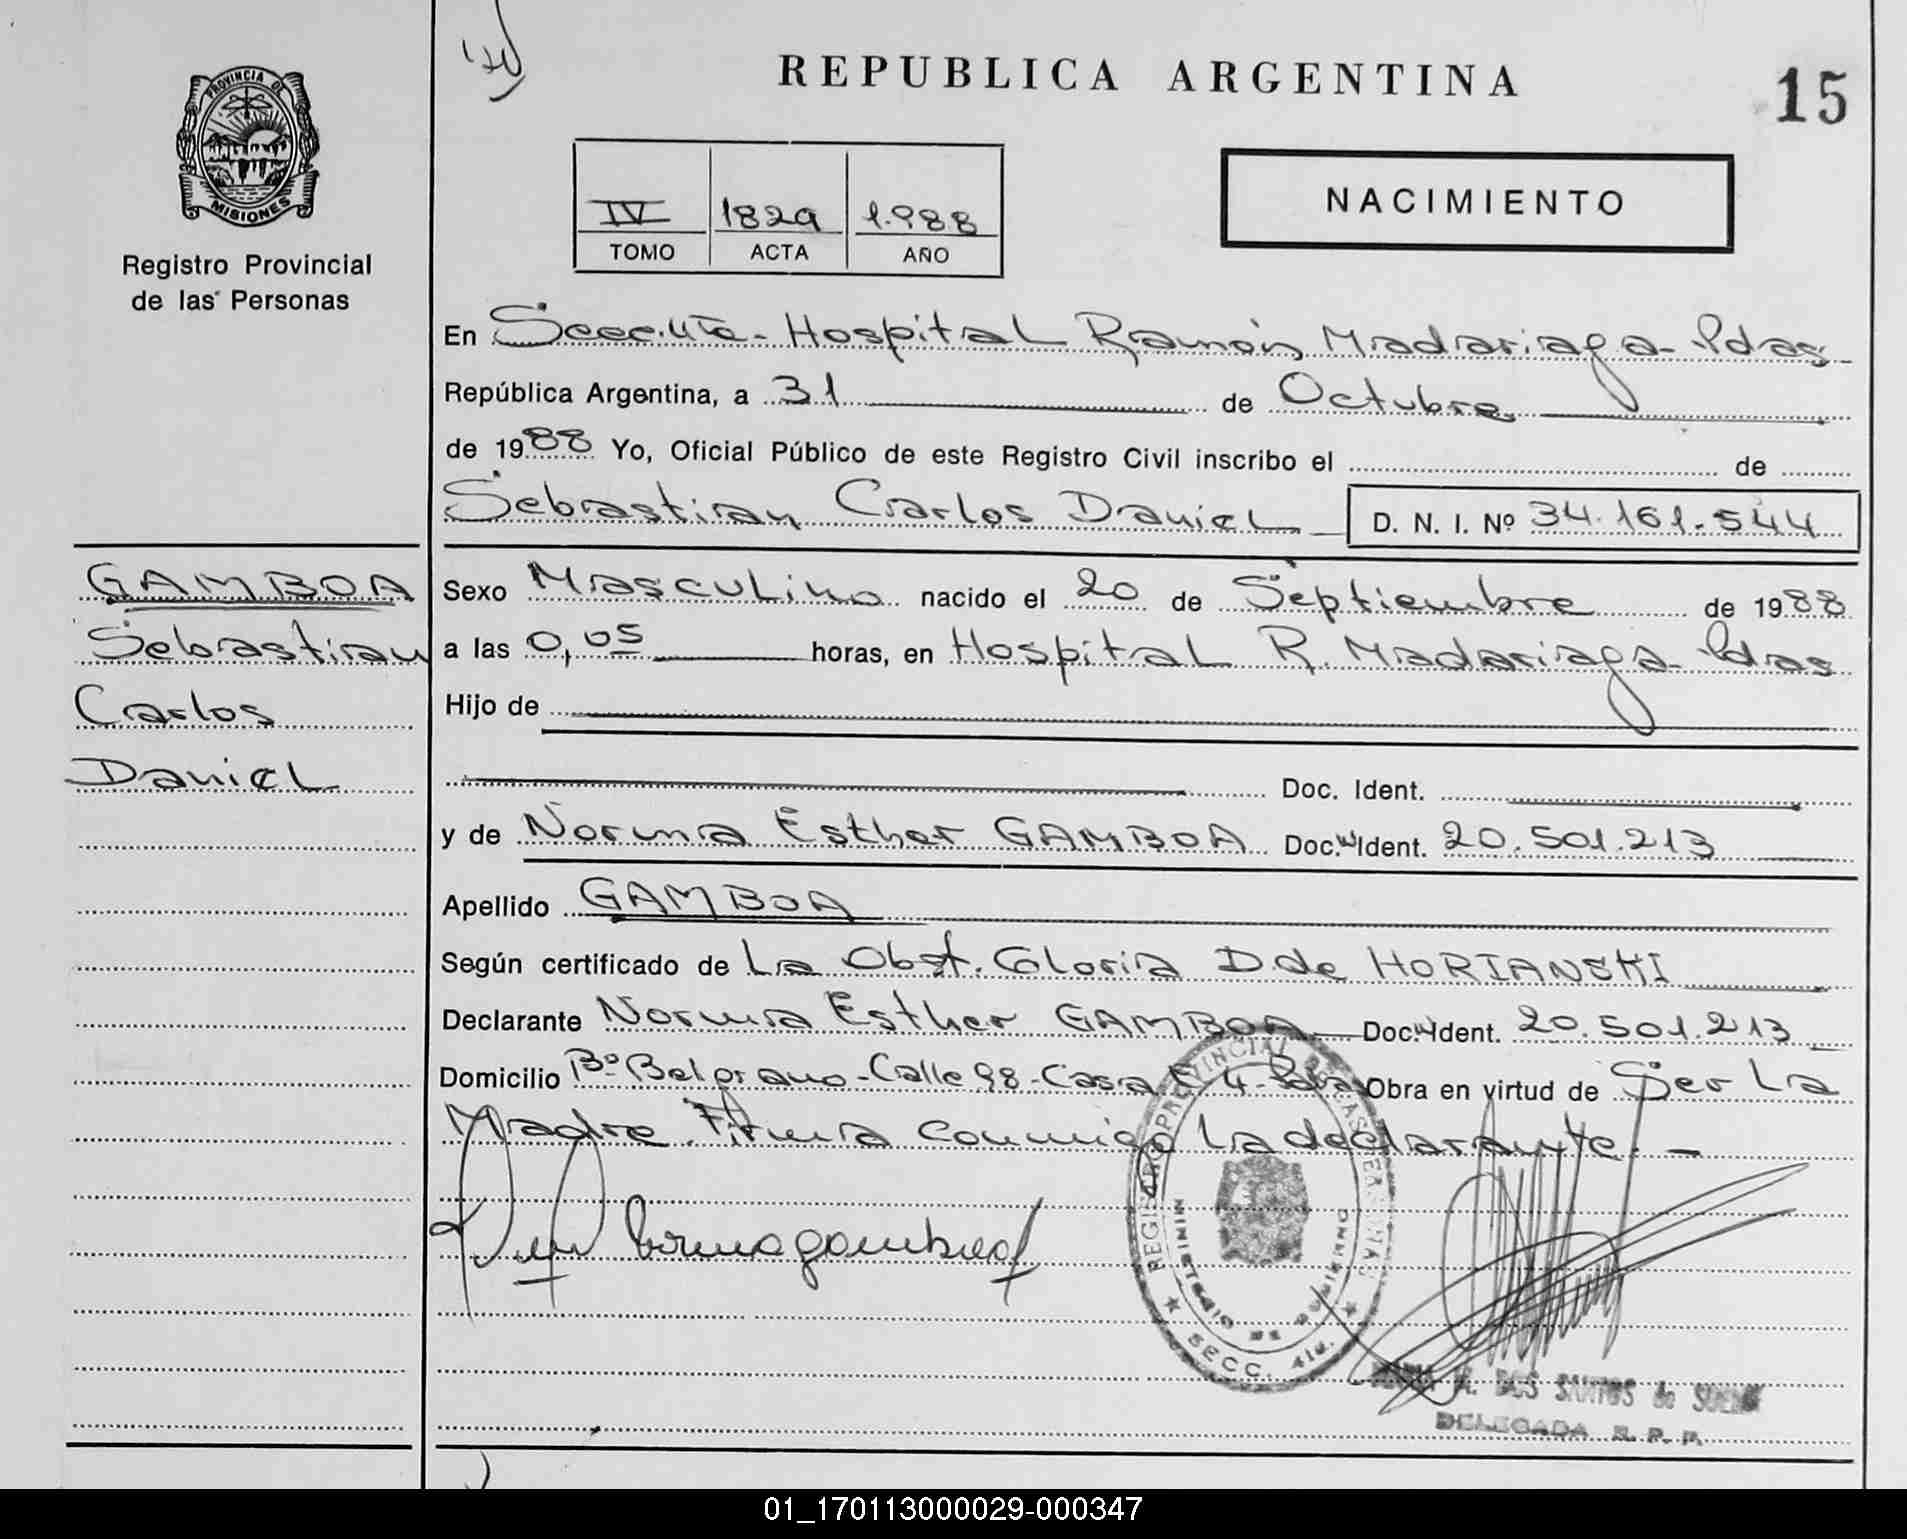 REPUBLICA ARGENTINA
15
PROVINCIA DE
MISIONES
Registro Provincial
de las Personas
IV 1829 1.988
TOMO ACTA AÑO
NACIMIENTO
En Secc. 4ta - Hospital Ramón Madariaga - Pdas
República Argentina, a 31 de Octubre
de 1988 Yo, Oficial Público de este Registro Civil inscribo el de
Sebastian Carlos Daniel D. N. I. Nº 34.161.544
GAMBOA
Sebastian
Carlos
Daniel
Sexo Masculino nacido el 20 de Septiembre de 1988
a las 0,05 horas, en Hospital R. Madariaga - Pdas
Hijo de
Doc. Ident.
y de Norma Esther GAMBOA Doc. Ident. 20.501.213
Apellido GAMBOA
Según certificado de La Obst. Gloria D. de HORIANSKI
Declarante Norma Esther GAMBOA Doc. Ident. 20.501.213
Domicilio Bº Belgrano - Calle 98 - Casa 4 - Obra en virtud de Ser La
Madre. Firma conmigo La declarante. -
REGISTRO PROVINCIAL DE LAS PERSONAS
MINISTERIO DE GOBIERNO
SECC. 4ta.
DOS SANTOS de
DELEGADA R. P. P.
01_170113000029-000347